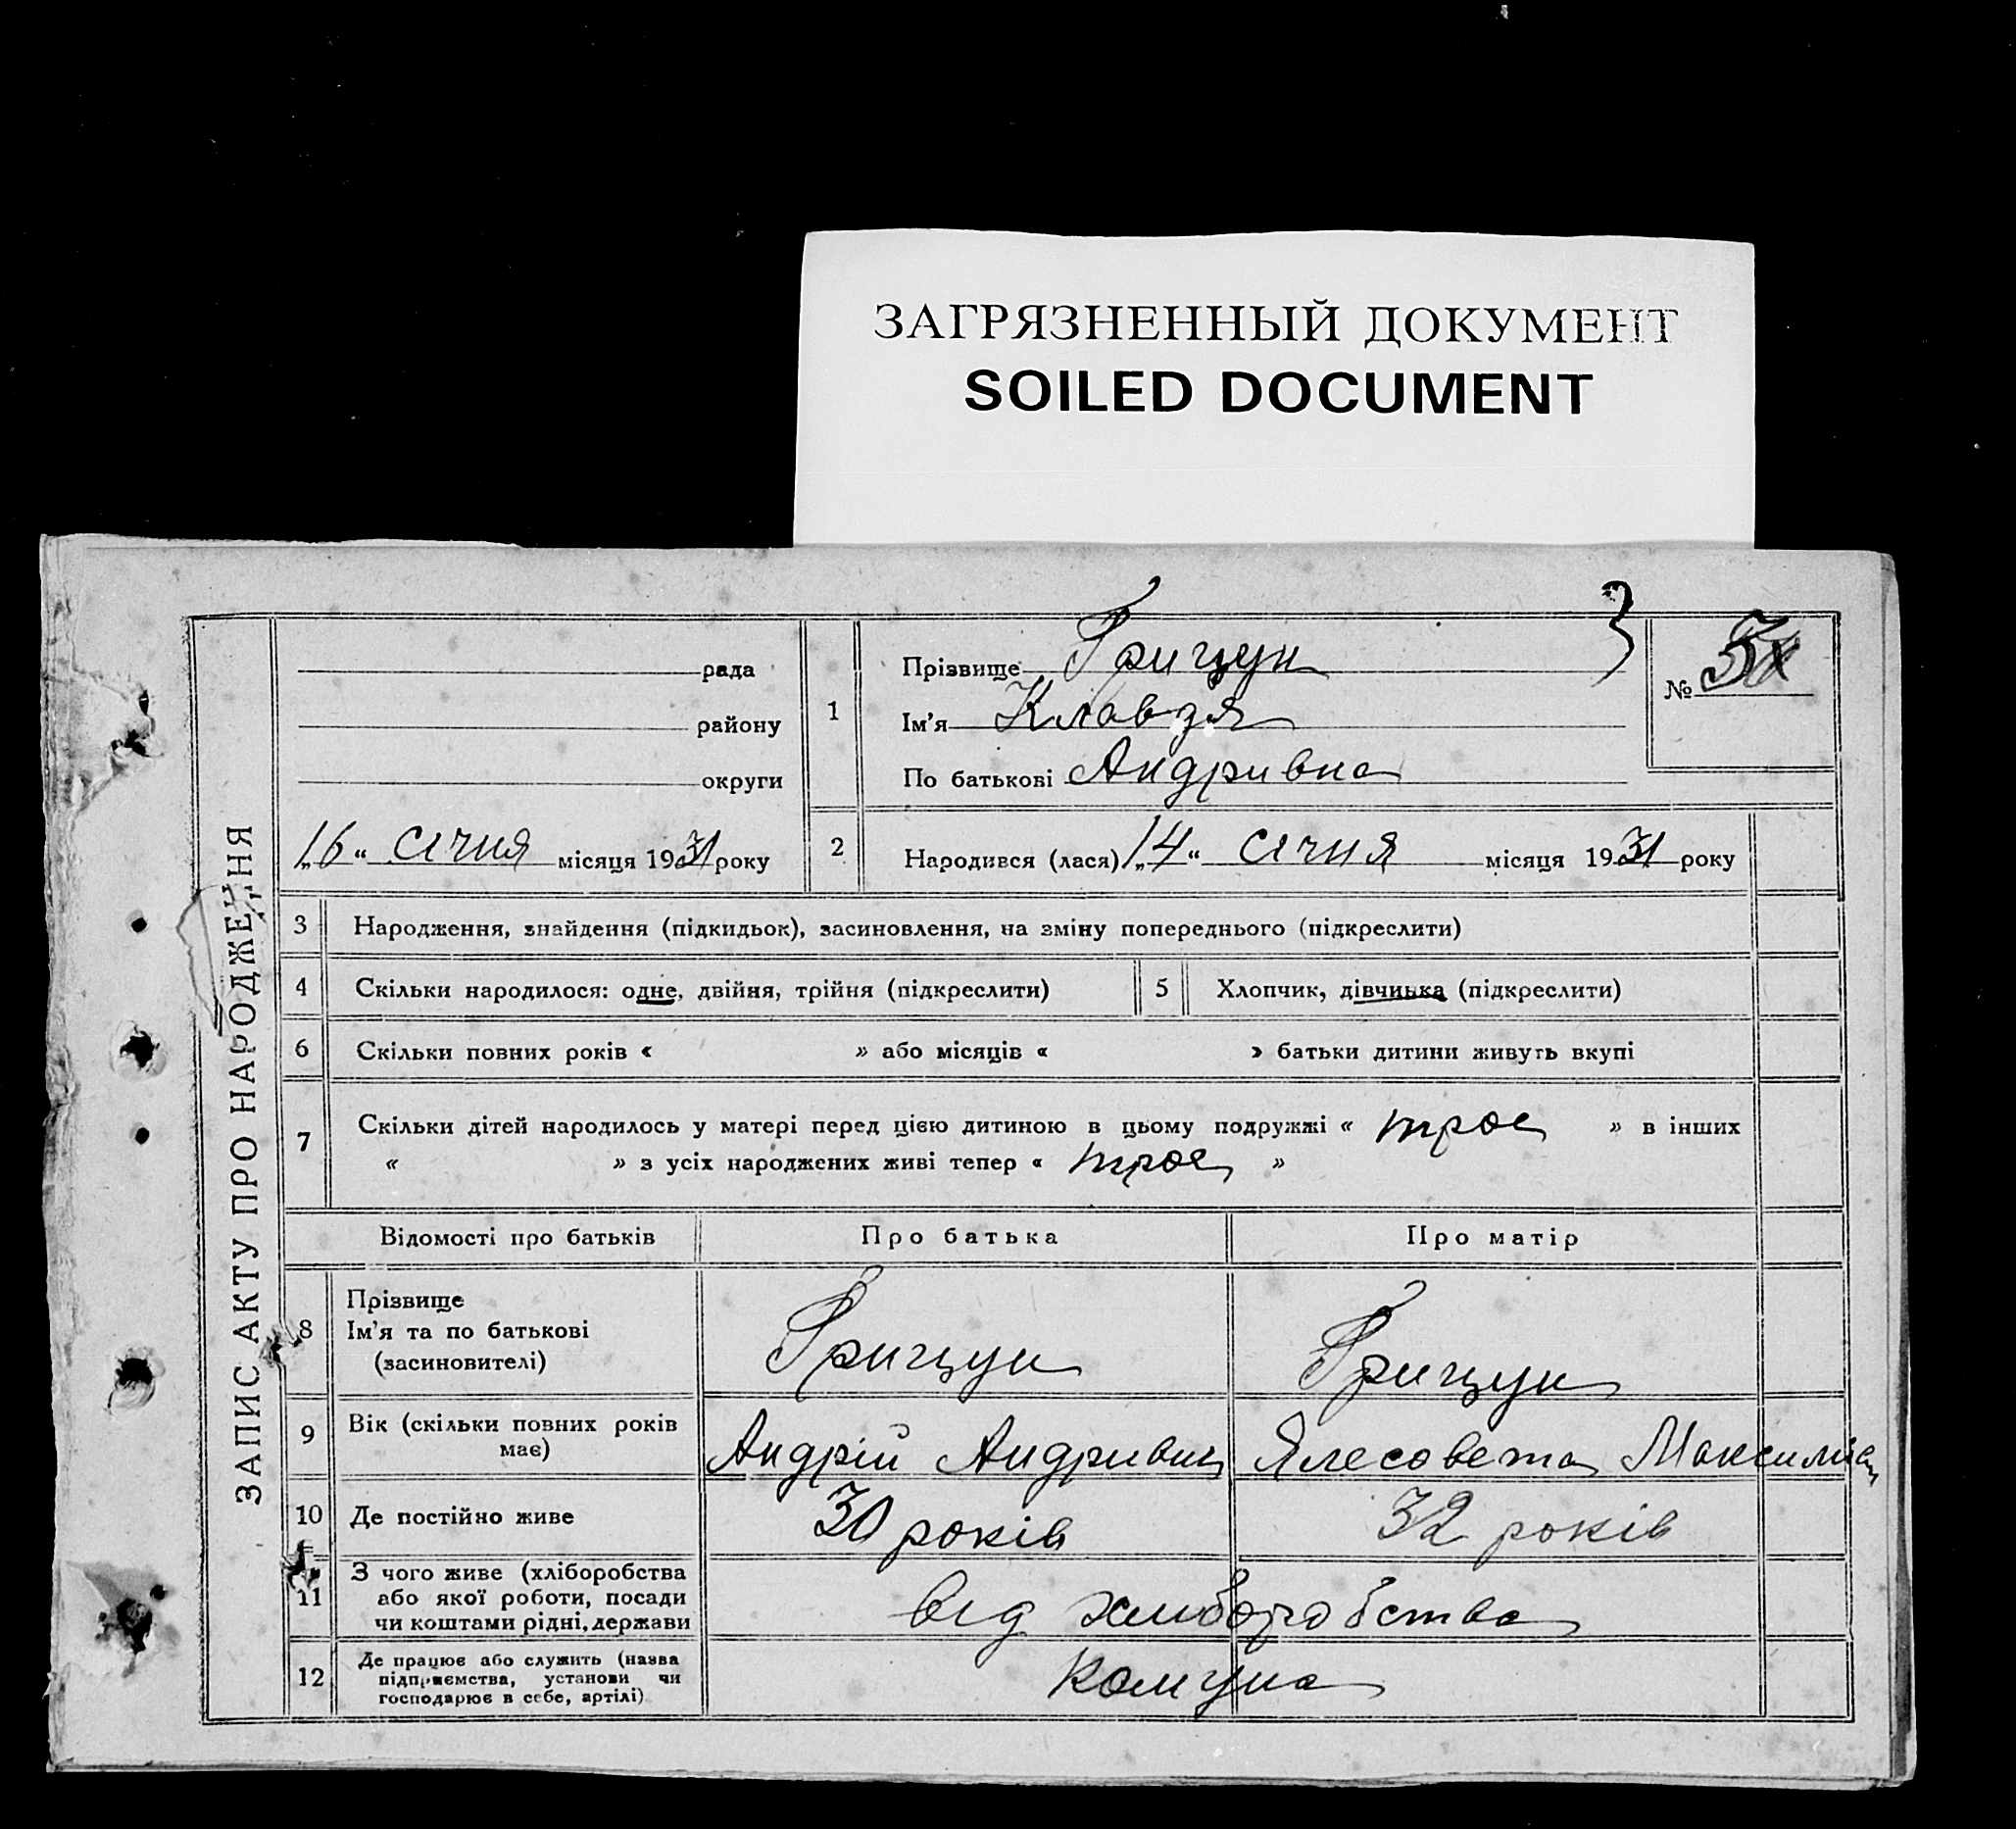 ЗАГРЯЗНЕННЫЙ ДОКУМЕНТ
SOILED DOCUMENT
ЗАПИС АКТУ ПРО НАРОДЖЕННЯ
рада
району
округи
„16“ січня місяця 1931 року
1
Прізвище Грицун
Ім'я Клавдя
По батькові Андривна
№
2
Народився (лася) „14“ січня місяця 1931 року
3 Народження, знайдення (підкидьок), засиновлення, на зміну попереднього (підкреслити)
4 Скільки народилося: одне, двійня, трійня (підкреслити) 5 Хлопчик, дівчинка (підкреслити)
6 Скільки повних років « » або місяців « » батьки дитини живуть вкупі
7 Скільки дітей народилось у матері перед цією дитиною в цьому подружжі « трое » в інших
« » з усіх народжених живі тепер « трое »
Відомості про батьків Про батька Про матір
8 Прізвище
Ім'я та по батькові
(засиновителі)
Грицун Грицун
9 Вік (скільки повних років
має)
Андрій Андривич Ялесовета
10 Де постійно живе 30 років 32 років
11 З чого живе (хліборобства
або якої роботи, посади
чи коштами рідні, держави
від хлиборобства
12 Де працює або служить (назва
підприємства, установи чи
господарює в себе, артілі)
Комуна